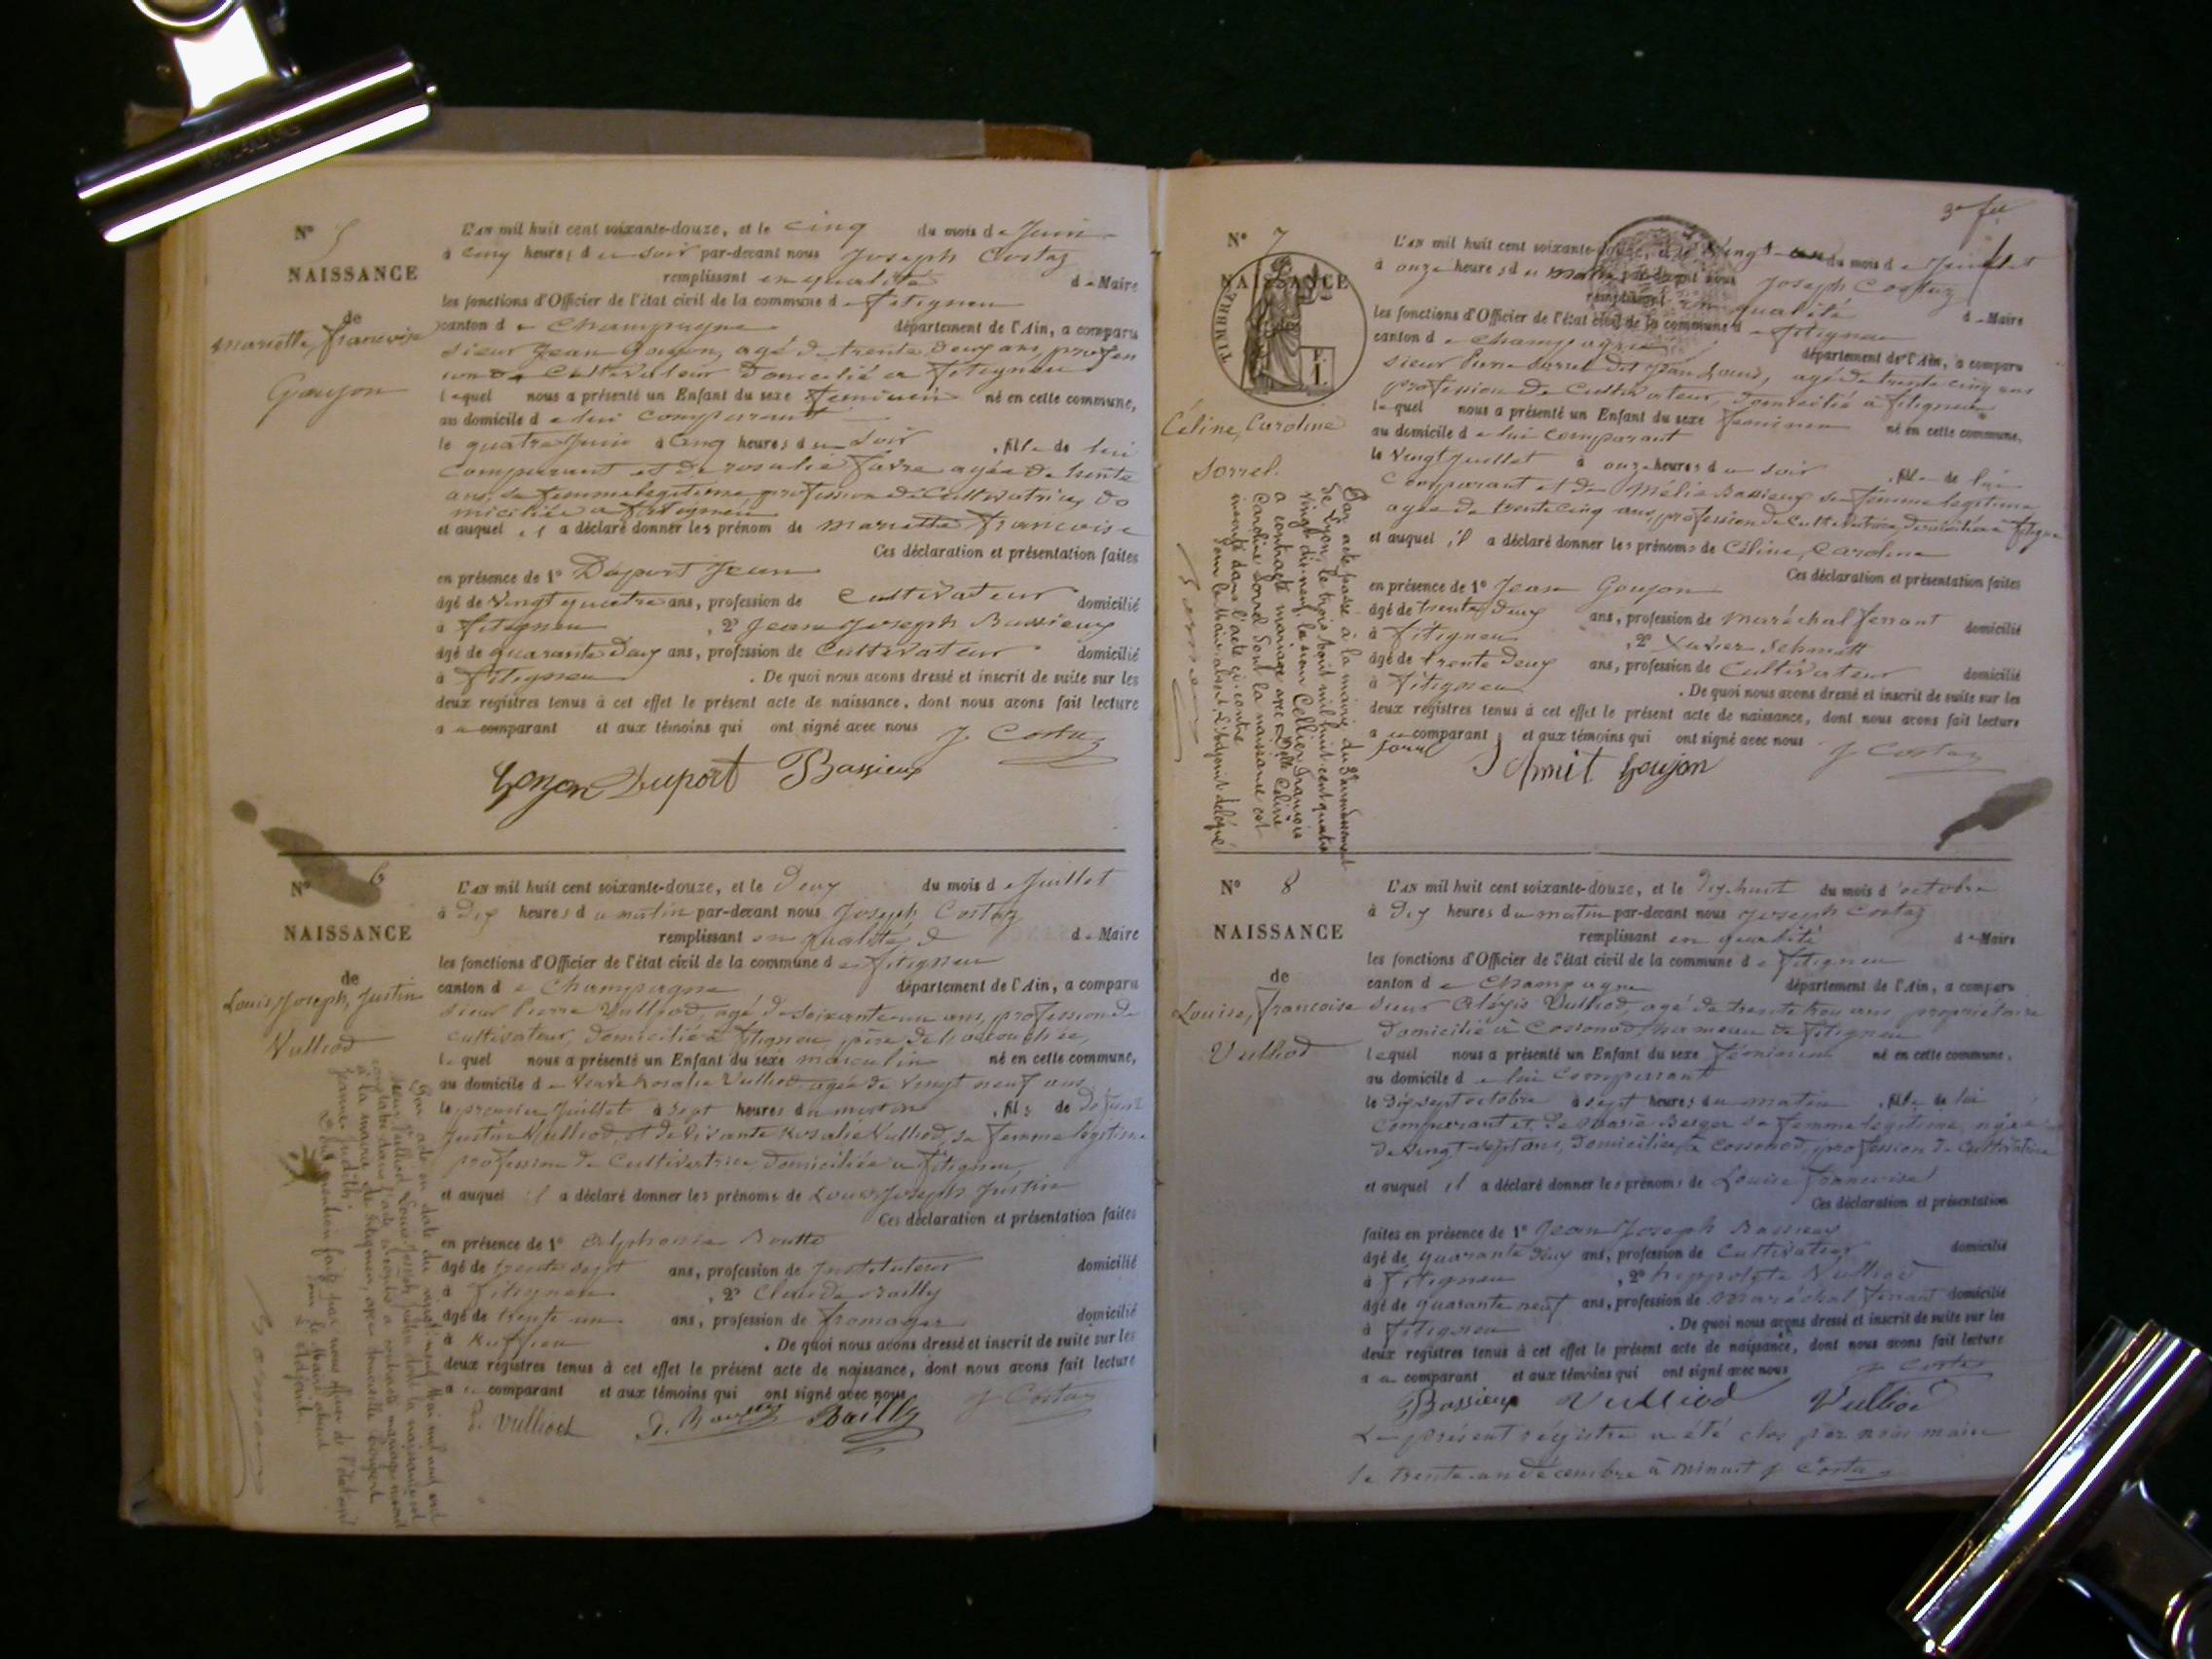 N° 5
NAISSANCE
de
Mariette, francoise
Goujon
L'AN mil huit cent soixante-douze, et le cinq du mois de Juin
à cinq heures du soir par-devant nous Joseph Costaz
remplissant en qualité de Maire
les fonctions d'Officier de l'état civil de la commune de fitignieu
canton de Champagne département de l'Ain, a comparu
sieur Jean Goujon, agé de trente deux ans, profes
sion de Cultivateur domicilié a fitignieu
lequel nous a présenté un Enfant du sexe feminin né en cette commune,
au domicile de lui comparant
le quatre Juin à Cinq heures du soir , fille de lui
comparant et de rosalie favre agée de trente
ans, sa femme legitime, profession de Cultivatrice, do
miciliée a fitignieu
et auquel il a déclaré donner les prénom de mariette francoise
Ces déclaration et présentation faites
en présence de 1° Duport Jean
âgé de vingt quatre ans, profession de Cultivateur domicilié
à fitignieu , 2° Jean Joseph Bassieux
âgé de quarante deux ans, profession de Cultivateur domicilié
à fitignieu . De quoi nous avons dressé et inscrit de suite sur les
deux registres tenus à cet effet le présent acte de naissance, dont nous avons fait lecture
au comparant et aux témoins qui ont signé avec nous J. Costaz
Gojon Duport Bassieux
N° 6
NAISSANCE
de
Louis, Joseph, Justin
Vulliod
L'AN mil huit cent soixante-douze, et le Deux du mois de Juillet
à Dix heures du matin par-devant nous Joseph Costaz
remplissant en qualité de Maire
les fonctions d'Officier de l'état civil de la commune de fitignieu
canton de Champagne département de l'Ain, a comparu
sieur Pierre Vulliod, agé de soixante un ans, profession de
cultivateur, domicilié à fitignieu, père de l'accouchée,
lequel nous a présenté un Enfant du sexe masculin né en cette commune,
au domicile de Veuve Rosalie Vulliod agée de vingt neuf ans
le premier Juillet à sept heures du matin , fils de défunt
Justin Vulliod, et de vivante Rosalie Vulliod, sa femme legitime
profession de Cultivatrice, domiciliée a fitignieu,
et auquel il a déclaré donner les prénoms de Louis Joseph Justin
Ces déclaration et présentation faites
en présence de 1° Alphonse
âgé de trente sept ans, profession de Instituteur domicilié
à fitignieu , 2° Claude Bailly
âgé de trente un ans, profession de fromager domicilié
à Ruffieu . De quoi nous avons dressé et inscrit de suite sur les
deux registres tenus à cet effet le présent acte de naissance, dont nous avons fait lecture
au comparant et aux témoins qui ont signé avec nous J Costaz
Vulliod Bailly
Par acte en date du vingt neuf Mai mil neuf cent
sieur Vulliod Louis Joseph Justin dont la naissance est
constatée dans l'acte ci-contre a contracté mariage
à la mairie de fitignieu, avec demoiselle
Jeanne Judith.
mention faite par nous officier de l'état civil
Pour le Maire absent
L'Adjoint.
N° 7
NAISSANCE
TIMBRE
Céline, Caroline
Sorrel.
L'AN mil huit cent soixante-douze, et le Vingt un du mois de Juillet
à onze heures du matin par-devant nous Joseph Costaz
remplissant en qualité de Maire
les fonctions d'Officier de l'état civil de la commune de fitignieu
canton de Champagne département de l'Ain, a comparu
sieur Pierre Sorrel dit Jean Louis, agé de trente cinq ans
profession de Cultivateur, domicilié a fitignieu
lequel nous a présenté un Enfant du sexe feminin né en cette commune,
au domicile de lui comparant
le Vingt Juillet à onze heures du soir , fille de lui
Comparant et de Mélie Bassieux sa femme legitime
agée de trente cinq ans, profession de Cultivatrice, domiciliée a fitignieu
et auquel il a déclaré donner les prénoms de Céline, Caroline
Ces déclaration et présentation faites
en présence de 1° Jean Goujon
âgé de trente deux ans, profession de Maréchal ferrant domicilié
à fitignieu , 2° Xavier Schmitt
âgé de trente deux ans, profession de Cultivateur domicilié
à fitignieu . De quoi nous avons dressé et inscrit de suite sur les
deux registres tenus à cet effet le présent acte de naissance, dont nous avons fait lecture
au comparant et aux témoins qui ont signé avec nous J Costaz
Sorrel Goujon
Par acte passé à la mairie du 3e arrondissement
de Lyon, le trois Août mil huit cent quatre
vingt dix neuf, le sieur Cellier François
a contracté mariage avec Delle Céline
Caroline Sorrel dont la naissance est
inscrite dans l'acte ci-contre
Pour le Maire absent, L'Adjoint délégué
N° 8
NAISSANCE
de
Louise, francoise
Vulliod
L'AN mil huit cent soixante-douze, et le Dix huit du mois d'octobre
à Dix heures du matin par-devant nous Joseph Costaz
remplissant en qualité de Maire
les fonctions d'Officier de l'état civil de la commune de fitignieu
canton de Champagne département de l'Ain, a comparu
sieur Alexis Vulliod, agé de trente trois ans propriétaire
domicilié à Cossonod, hameau de fitignieu
lequel nous a présenté un Enfant du sexe féminin né en cette commune,
au domicile de lui comparant
le Dix sept octobre à sept heures du matin , fille de lui
Comparant et de Marie Berger sa femme légitime agée
de vingt-sept ans, domiciliée à Cossonod, profession de Cultivatrice
et auquel il a déclaré donner les prénoms de Louise francoise
Ces déclaration et présentation
faites en présence de 1° Jean Joseph Bassieux
âgé de quarante deux ans, profession de Cultivateur domicilié
à fitignieu , 2° hippolyte Vulliod
âgé de quarante neuf ans, profession de Maréchal ferrant domicilié
à fitignieu . De quoi nous avons dressé et inscrit de suite sur les
deux registres tenus à cet effet le présent acte de naissance, dont nous avons fait lecture
au comparant et aux témoins qui ont signé avec nous J Costaz
Bassieux Vulliod Vulliod
Le présent régistre a été clos par nous maire
le trente un décembre à minuit J Costaz